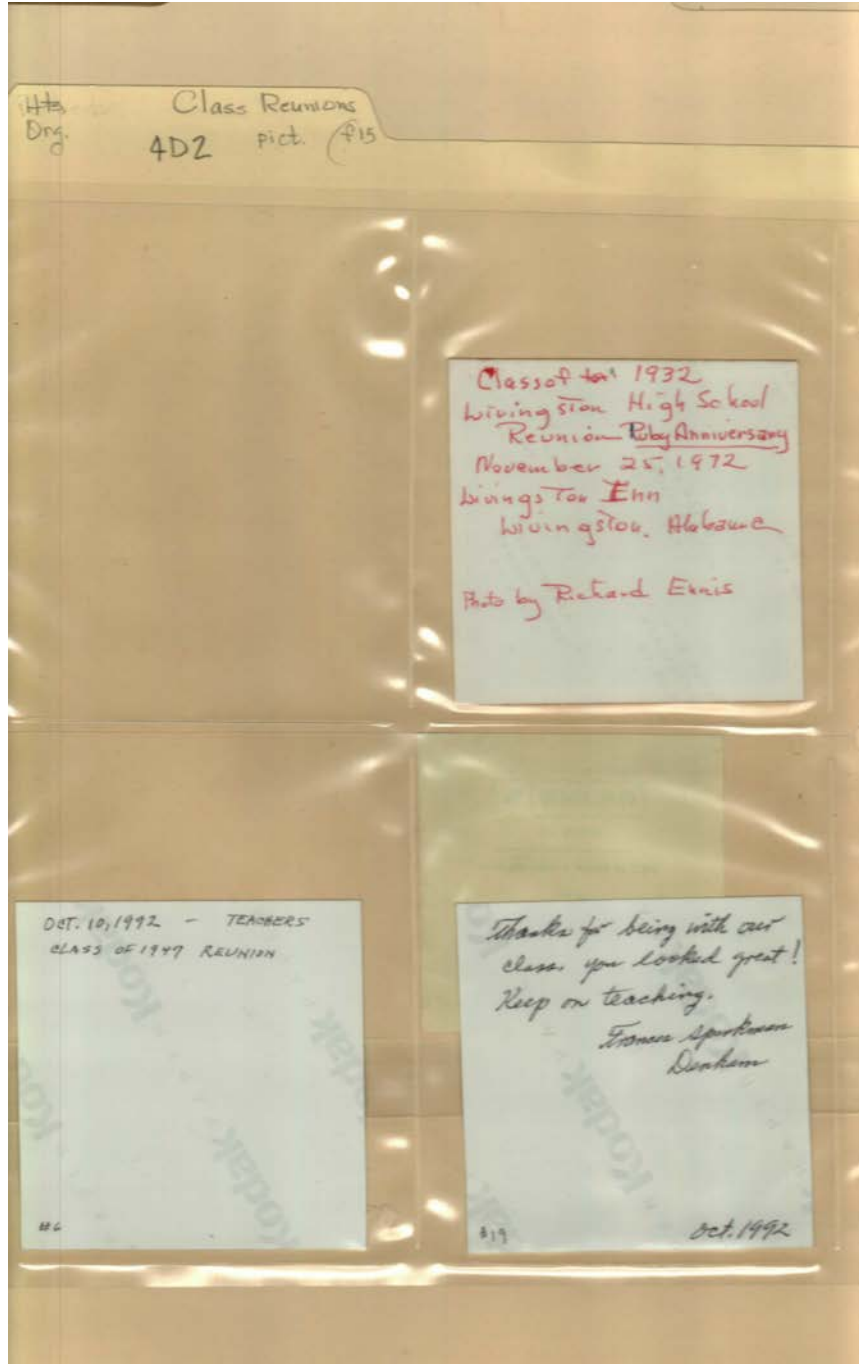 Class Reunions
Org.
4D2 pict. f15
Class of 1932
Livingston High School
Reunion Ruby Anniversary
November 25, 1972
Livingston Inn
Livingston, Alabama
Photo by Richard Ennis
OCT. 10, 1992 - TEACHERS
CLASS OF 1947 REUNION
Kodak
Kodak
Kodak
#6
Thanks for being with our
class. you looked great!
Keep on teaching.
Frances Sparkman
Denham
Kodak
#19 Oct. 1992